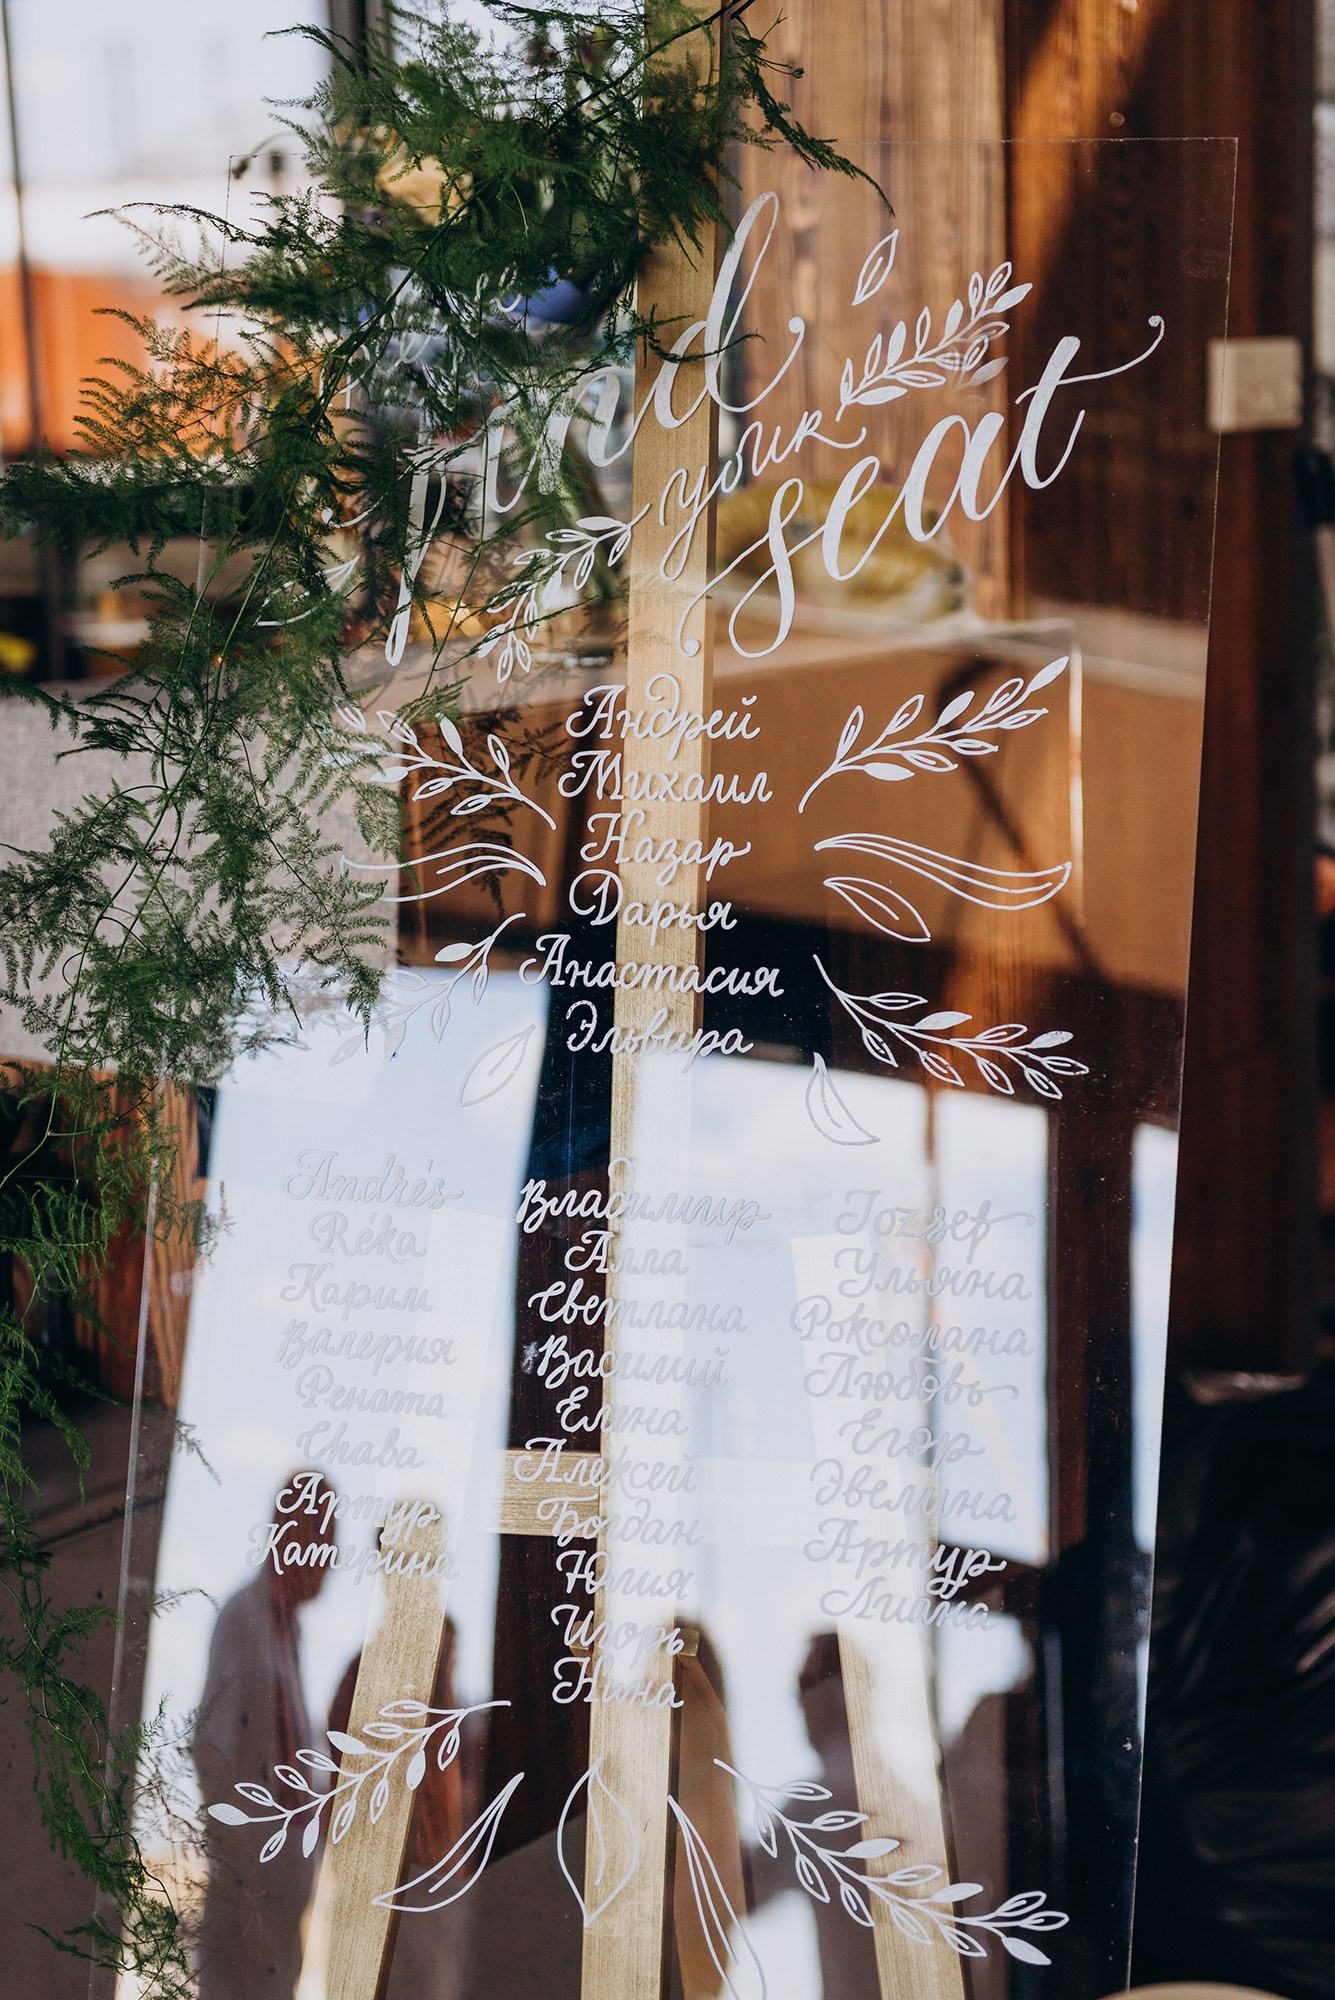 find
your
seat
Андрей
Михаил
Назар
Дарья
Анастасия
Эльвира
Andrés
Réka
Карим
Валерия
Рената
Chaba
Артур
Катерина
Владимир
Алла
Светлана
Василий
Елена
Алексей
Богдан
Юлия
Игорь
Нина
Jozsef
Ульяна
Роксолана
Любовь
Егор
Эвелина
Артур
Лиана